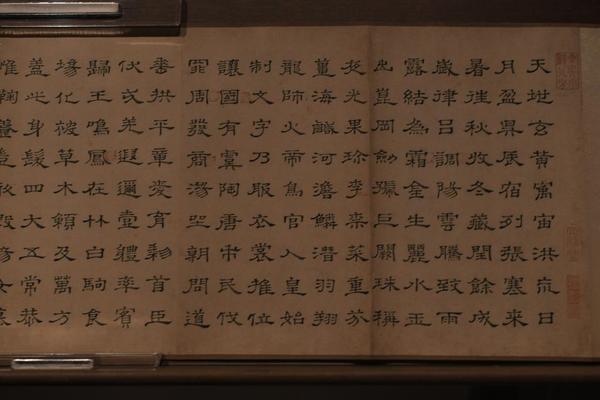 天地玄黃寓宙洪荒日
月盈昃辰宿列張寒來
暑往秋收冬藏閏餘成
歲律呂調陽雲騰致雨
露結為霜金生麗水玉
出崑岡劍號巨闕珠稱
夜光果珍李柰菜重芥
薑海鹹河澹鱗潛羽翔
龍師火帝鳥官人皇始
制文字乃服衣裳推位
讓國有虞陶唐弔民伐
罪周發商湯坐朝問道
垂拱平章愛育黎首臣
伏戎羌遐邇壹體率賓
歸王鳴鳳在竹白駒食
場化被草木賴及萬方
蓋此身髮四大五常恭
惟鞠養豈敢毀傷女慕